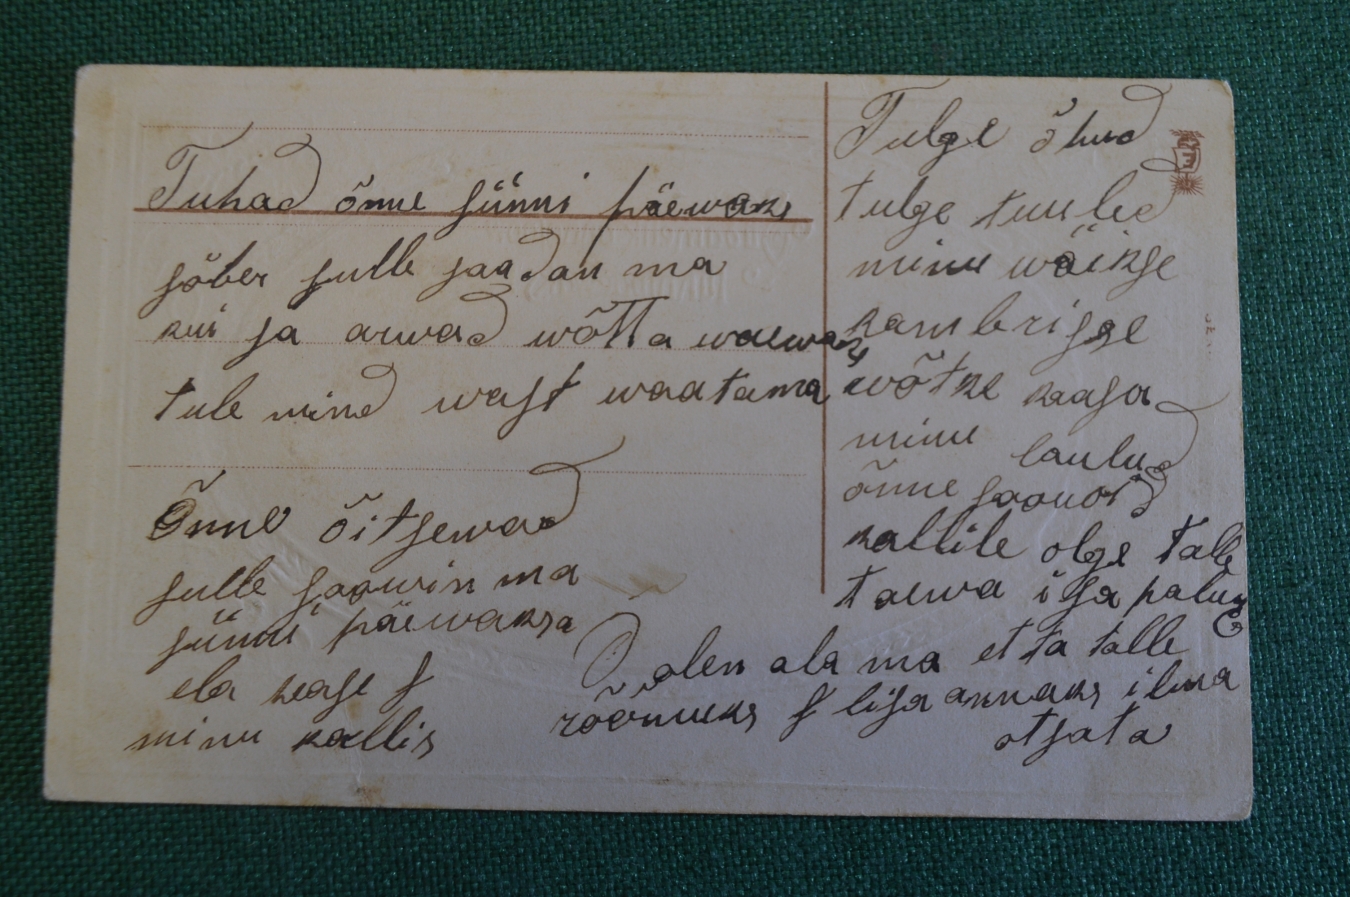 Tuhad õnne sünni päewaks
sõber sulle saadan ma
kui sa arwad wõtta waewaks
tule mind wast waatama
Õnne õitsewad
sulle soowin ma
sünni päewaksa
ela keage s
minu kallis
Tulge õhud
tulge tuuled
minu wäikse
kambrisse
wõtke kaasa
minu laulud
õnne soowid
kallile olge talle
taewa isa palun
Tolen ala ma et ta talle
rõõmuks s lisa annaks ilma
otsata